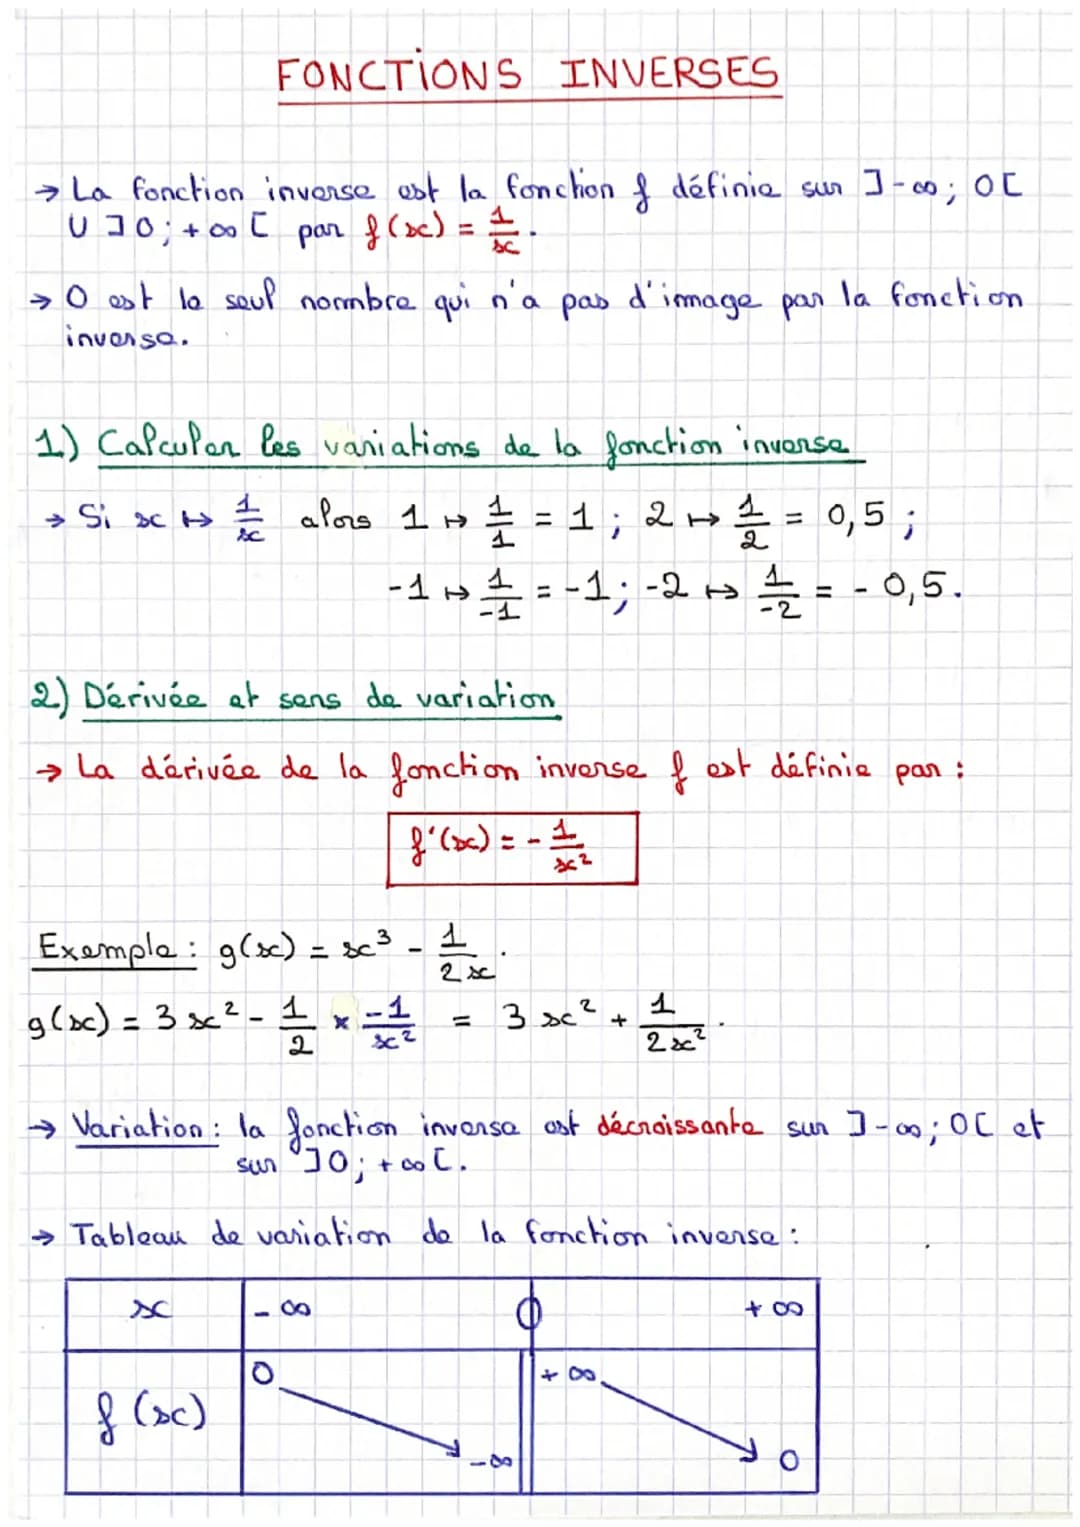 FONCTIONS INVERSES
→ La fonction inverse est la fonction f définie sur ]-∞; 0[
U ]0; +∞[ par f(x) = 1/x.
→ 0 est le seul nombre qui n'a pas d'image par la fonction
inverse.
1) Calculer les variations de la fonction inverse
→ Si x ↦ 1/x alors 1 ↦ 1/1 = 1 ; 2 ↦ 1/2 = 0,5 ;
-1 ↦ 1/-1 = -1; -2 ↦ 1/-2 = - 0,5.
2) Dérivée et sens de variation
→ La dérivée de la fonction inverse f est définie par :
f'(x) = - 1/x²
Exemple : g(x) = x³ - 1/2x.
g(x) = 3x² - 1/2 × -1/x² = 3x² + 1/2x².
→ Variation : la fonction inverse est décroissante sur ]-∞; 0[ et
sur ]0; +∞[.
→ Tableau de variation de la fonction inverse :
x -∞ 0 +∞
f(x) 0 -∞ +∞ 0